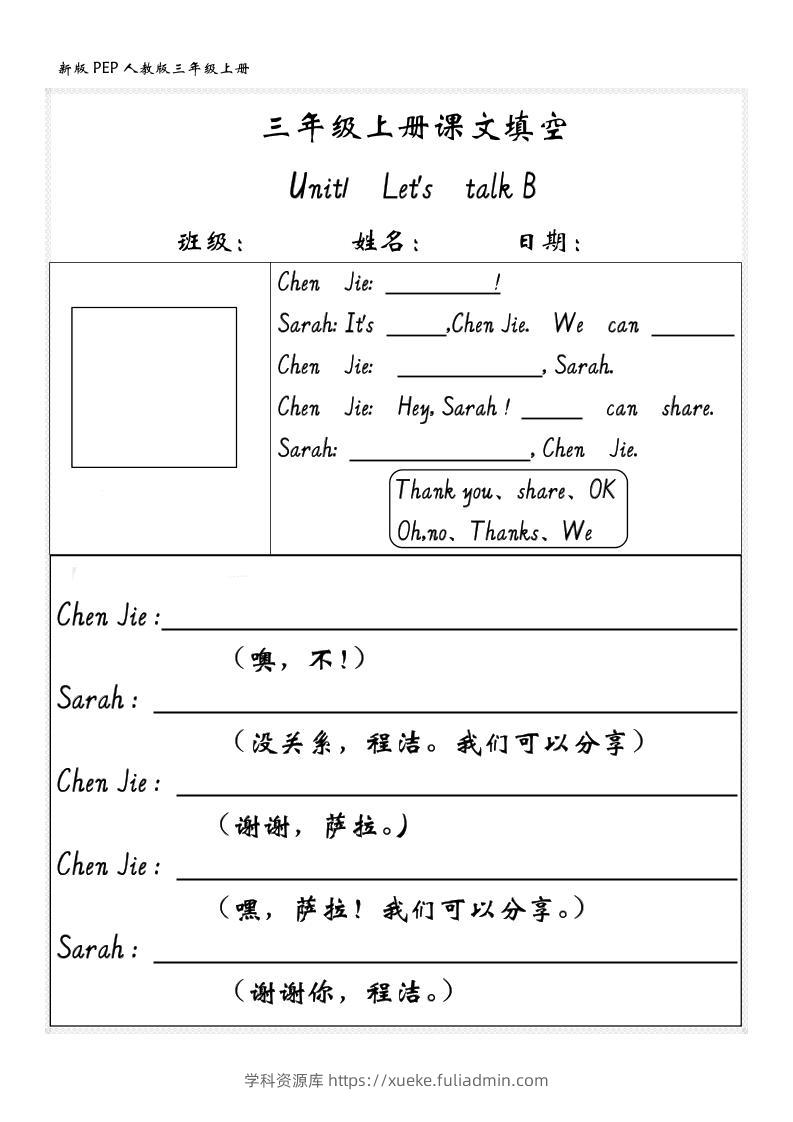 新版 PEP 人教版三年级上册
三年级上册课文填空
Unit1 Let's talk B
班级： 姓名： 日期：
Chen Jie: __________!
Sarah: It's _____,Chen Jie. We can _______
Chen Jie: ____________, Sarah.
Chen Jie: Hey, Sarah! _____ can share.
Sarah: _______________, Chen Jie.
Thank you、share、OK
Oh,no、Thanks、We
Chen Jie:
（噢，不！）
Sarah:
（没关系，程洁。我们可以分享）
Chen Jie:
（谢谢，萨拉。）
Chen Jie:
（嘿，萨拉！我们可以分享。）
Sarah:
（谢谢你，程洁。）
学科资源库 https://xueke.fuliadmin.com